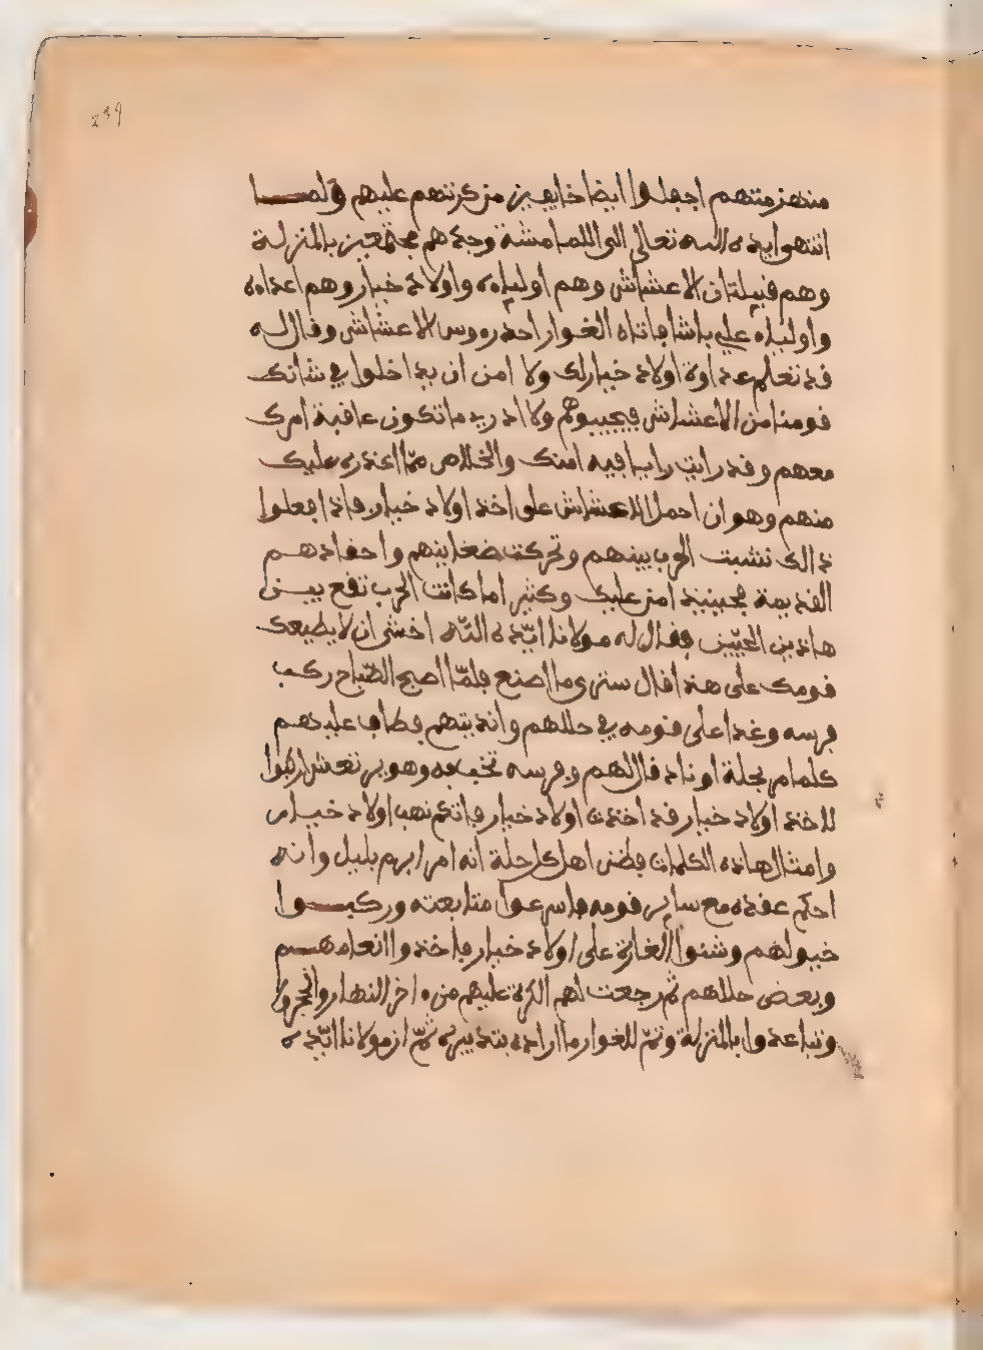 239
منهزمتهم اجفلوا ايضا خايفين من كرتهم عليهم ولمــا
انتهوا ايده الله تعالى الى اللمامشة وجدهم مجتمعين بالمنزلة
وهم قبيلتان الاعشاش وهم اولياه واولاد خيار وهم اعداه
واولياه علي باشا فاتاه الغوار احد روس الاعشاش وقال له
قد تعلم عداوة اولاد خيار لك ولا امن ان يداخلوا في شانك
قومنا من الاعشاش فيجيبوهم ولا ادري ما تكون عاقبة امرك
معهم وقد رايت رايا فيه امنك والخلاص مما اعذره عليك
منهم وهو ان احمل الاعشاش على اخذ اولاد خيار فاذا فعلوا
ذالك نشبت الحرب بينهم وتحركت ضغاينهم واحقادهــم
القديمة فحينيذ امن عليك وكثيرا ما كانت الحرب تقع بيــن
هاذين الحيين فقال له مولانا ايّده اللّه اخشى ان لا يطيعك
قومك على هذا قال سترى ما اصنع فلمّا اصبح الصّباح ركب
فرسه وغدا على قومه في حللهم وانديتهم فطاف عليهم
كلما مر بحلة او ناد قال لهم وفرسه تخب به وهو يرتعش اركبوا
لاخذ اولاد خيار قد اخذت اولاد خيار فاتكم نهب اولاد خيــار
وامثال هاذه الكلمات فظن اهل كل حلة انه امر ابرم بليل وانه
احكم عقده مع ساير قومه فاسرعوا متابعته وركبــوا
خيولهم وشنوا الغارة على اولاد خيار فاخذوا انعامهــم
وبعض حللهم ثم رجعت لهم الكرة عليهم من ءاخر النهار
وتباعدوا بالمنزلة وتمّ للغوار ما اراده بتدبيره ثمّ ان مولانا ايّده